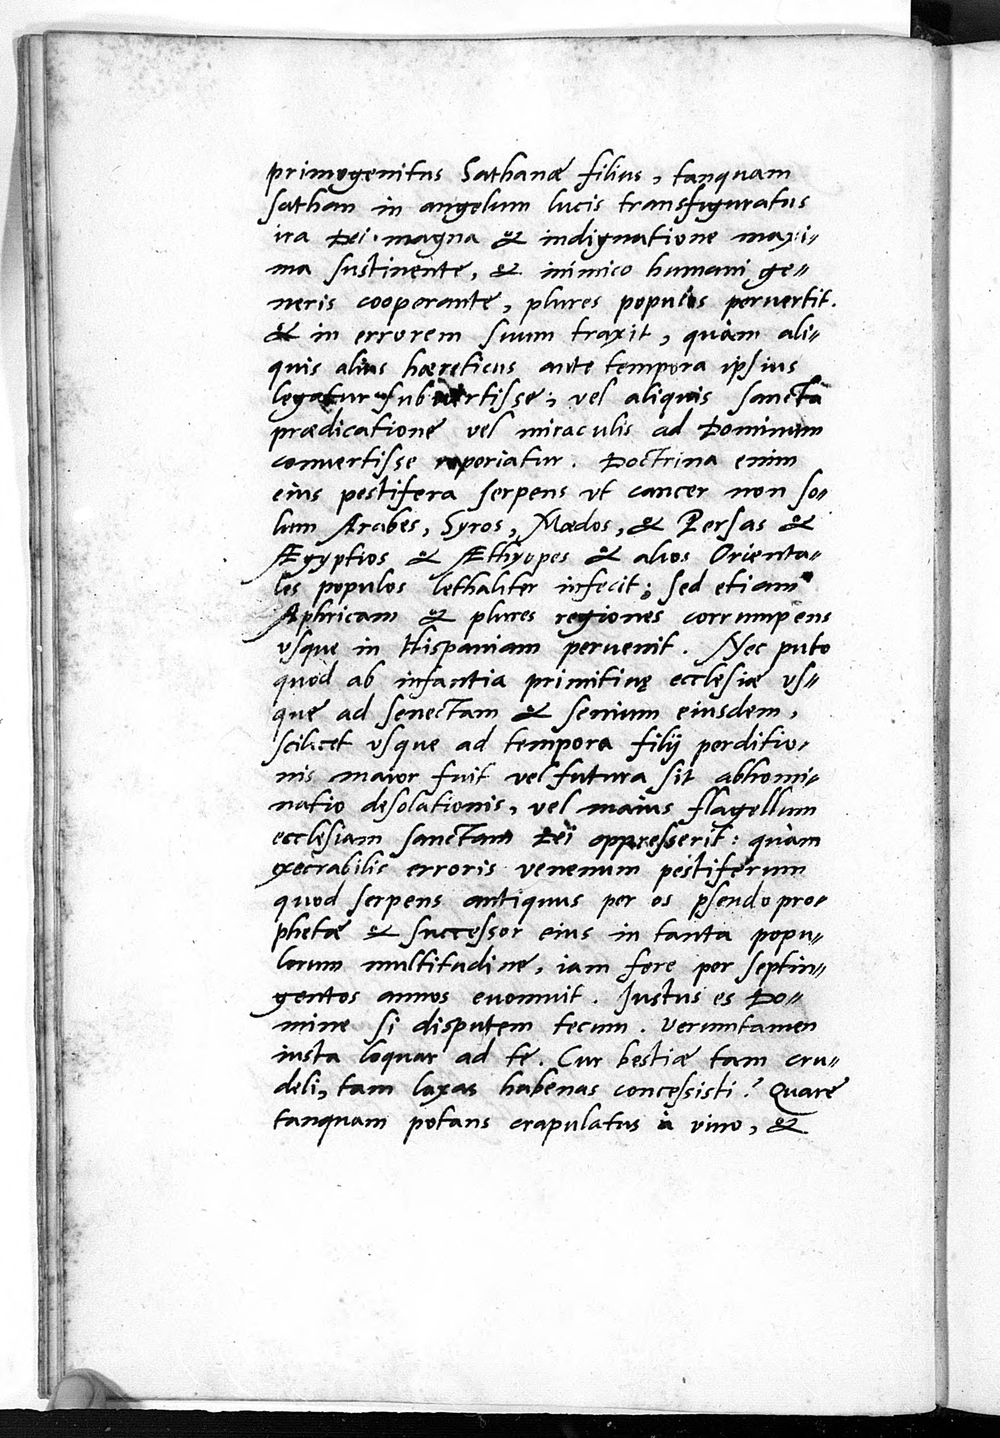 primogenitus Sathanæ filius, tanquam
sathan in angelum lucis transfiguratus
ira Dei magna & indignatione maxi-
ma sustinente, & inimico humani ge-
neris cooperante, plures populos peruertit.
& in errorem suum traxit, quàm ali-
quis alius hæreticus ante tempora ipsius
legatur subuertisse, vel aliquis sancta
prædicatione vel miraculis ad Dominum
conuertisse reperiatur. Doctrina enim
eius pestifera serpens vt cancer non so-
lum Arabes, Syros, Mædos, & Persas &
Ægyptios & Æthyopes & alios Orienta-
les populos lethaliter infecit; sed etiam
Aphricam & plures regiones corrumpens
vsque in Hispaniam peruenit. Nec puto
quòd ab infantia primitiuę ecclesiæ vs-
que ad senectam & senium eiusdem,
scilicet vsque ad tempora filij perditio-
nis maior fuit vel futura sit abhomi-
natio desolationis, vel maius flagellum
ecclesiam sanctam Dei oppresserit: quàm
execrabilis erroris venenum pestiferum
quod serpens antiquus per os pseudopro-
phetæ & successor eius in tanta popu-
lorum multitudine, iam fere per septin-
gentos annos euomuit. Justus es Do-
mine si disputem tecum. Veruntamen
iusta loquar ad te. Cur bestiæ tam cru-
deli, tam laxas habenas concessisti? Quare
tanquam potans crapulatus à vino, &